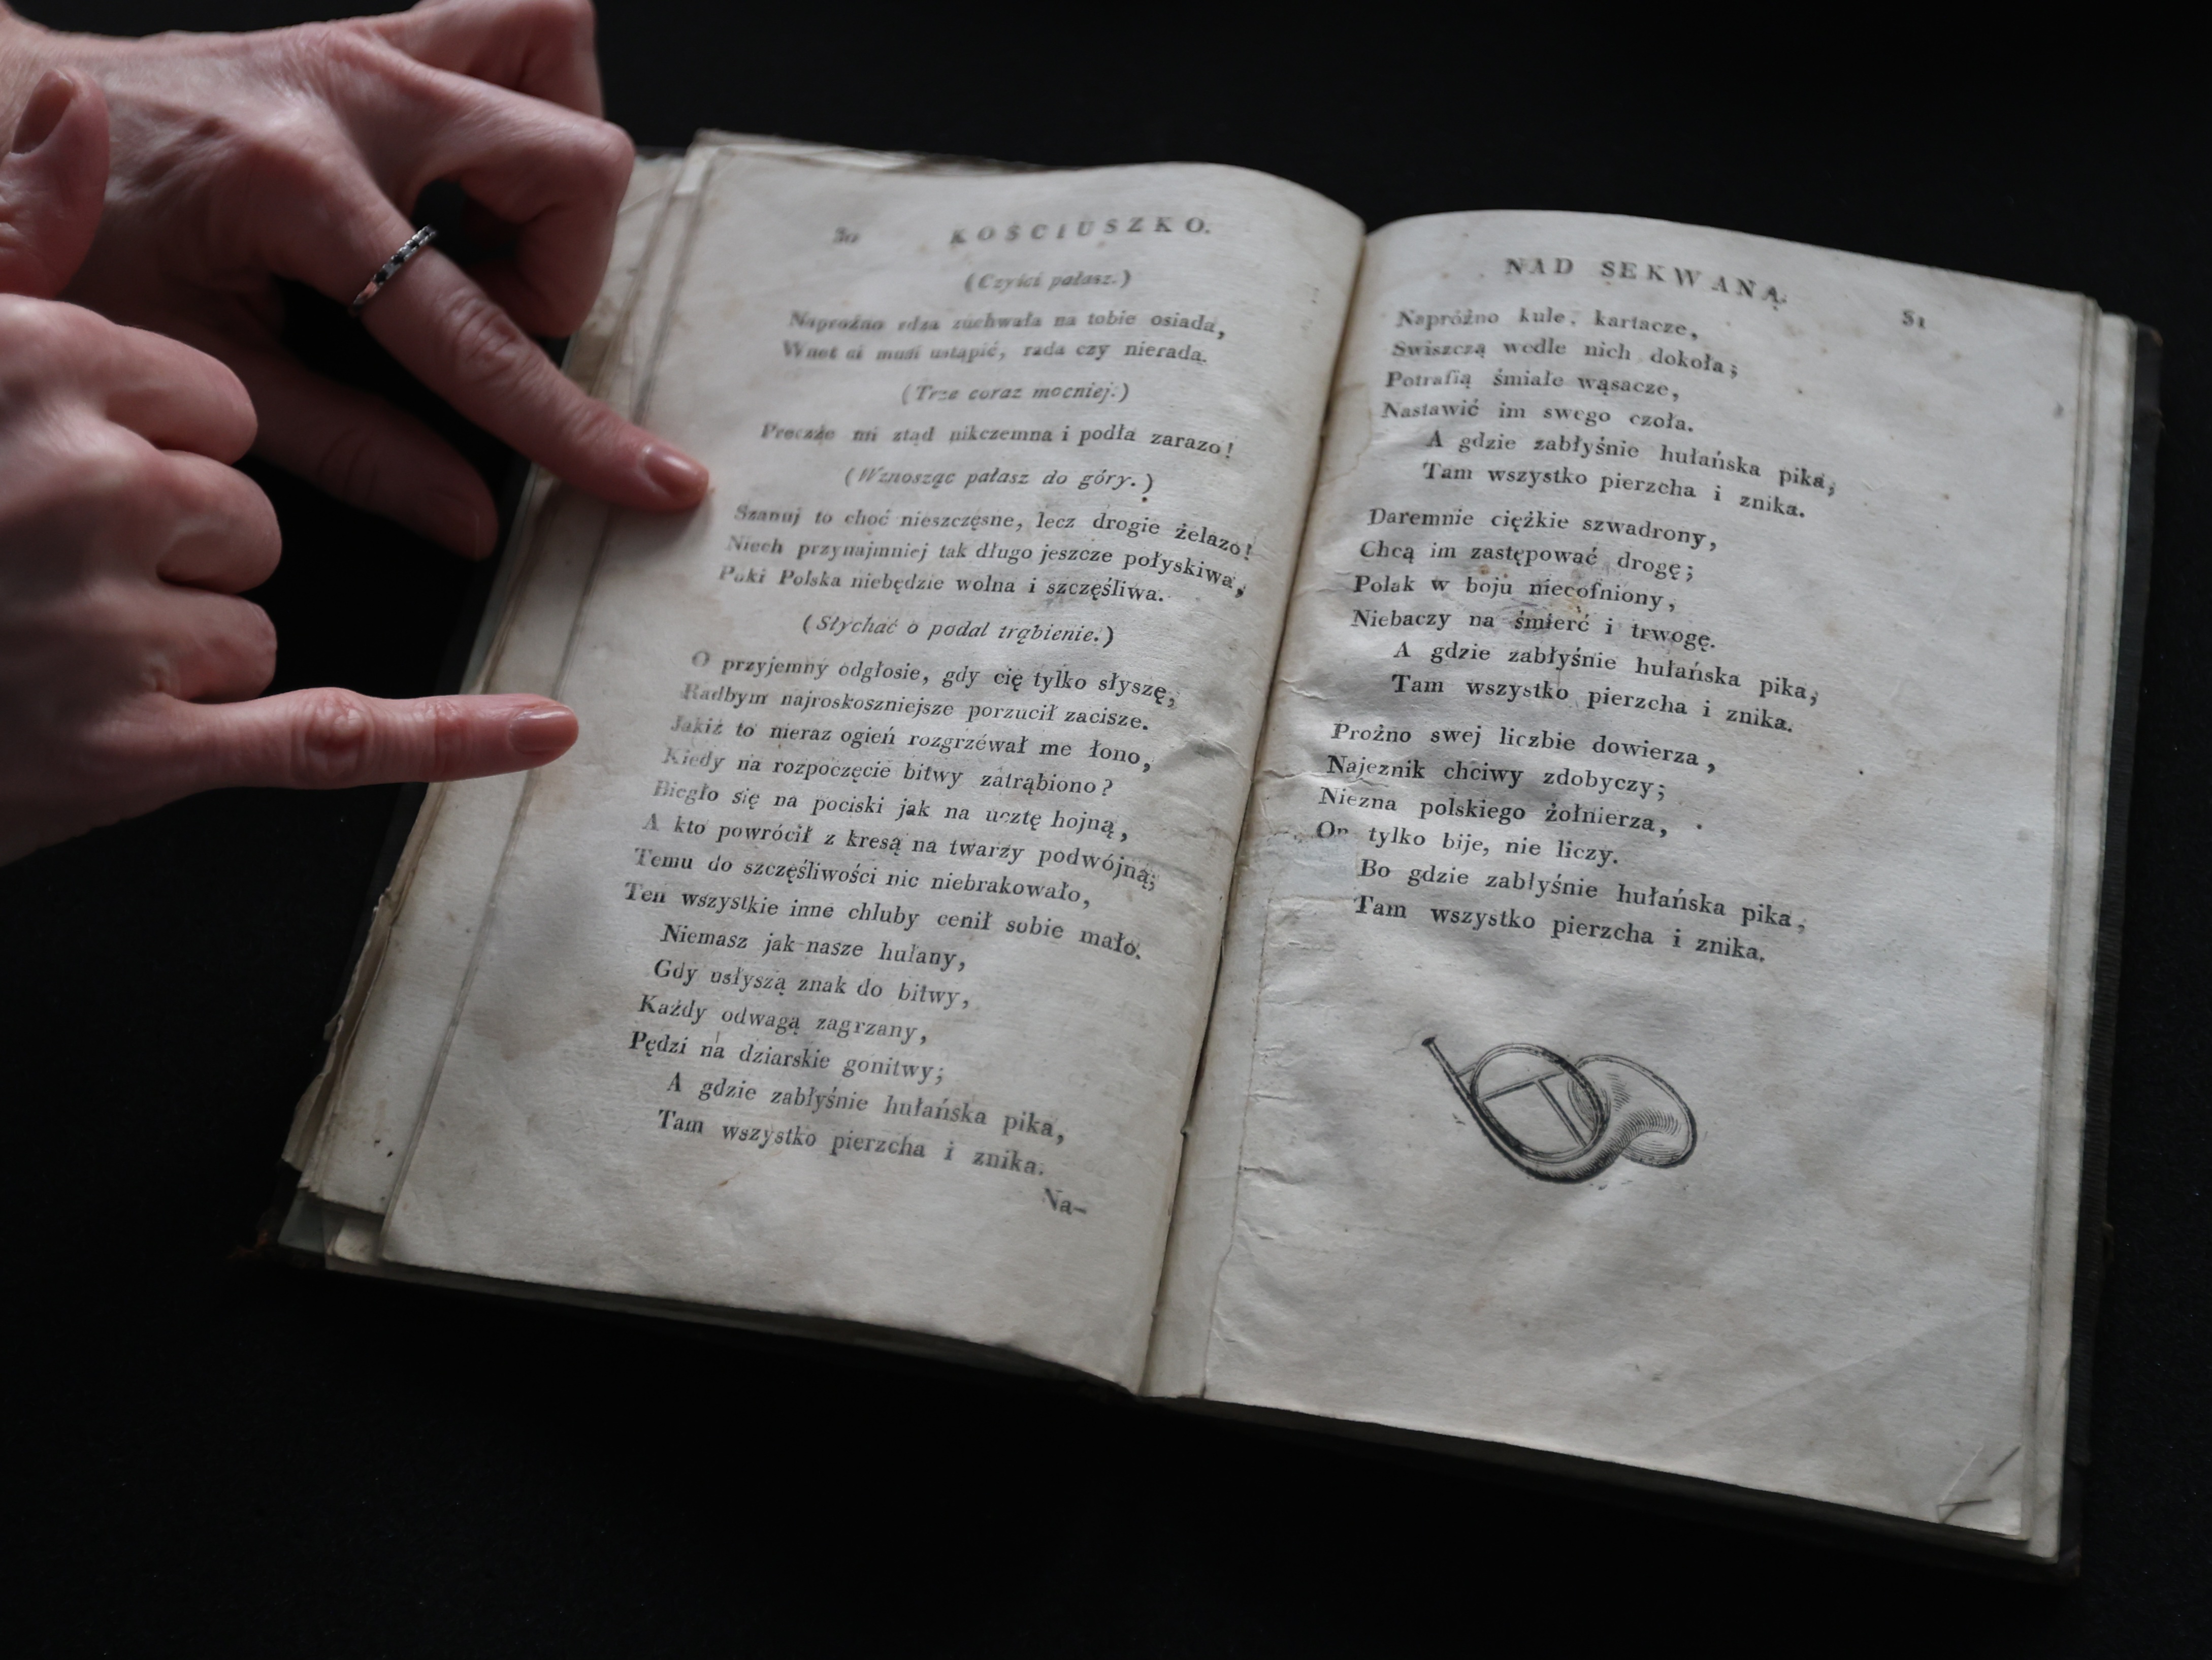 30 KOŚCIUSZKO.
(Czyści pałasz.)
Naprożno rdza zuchwała na tobie osiada,
Wnet ci musi ustąpić, rada czy nierada.
(Trze coraz mocniej.)
Precżże mi ztąd nikczemna i podła zarazo!
(Wznosząc pałasz do góry.)
Szanuj to choć nieszczęsne, lecz drogie żelazo!
Niech przynajmniej tak długo jeszcze połyskiwa,
Póki Polska niebędzie wolna i szczęśliwa.
(Słychać o podal trąbienie.)
O przyjemny odgłosie, gdy cię tylko słyszę,
Radbym najroskoszniejsze porzucił zacisze.
Jakiż to nieraz ogień rozgrzéwał me łono,
Kiedy na rozpoczęcie bitwy zatrąbiono?
Biegło się na pociski jak na ucztę hojną,
A kto powrócił z kresą na twarzy podwójną;
Temu do szczęśliwości nic niebrakowało,
Ten wszystkie inne chluby cenił sobie mało.
Niemasz jak nasze hułany,
Gdy usłyszą znak do bitwy,
Każdy odwagą zagrzany,
Pędzi na dziarskie gonitwy;
A gdzie zabłyśnie hułańska pika,
Tam wszystko pierzcha i znika.
Na-
NAD SEKWANĄ. 31
Napróżno kule, kartacze,
Swiszczą wedle nich dokoła;
Potrafią śmiałe wąsacze,
Nastawić im swego czoła.
A gdzie zabłyśnie hułańska pika,
Tam wszystko pierzcha i znika.
Daremnie ciężkie szwadrony,
Chcą im zastępować drogę;
Polak w boju niecofniony,
Niebaczy na śmierć i trwogę.
A gdzie zabłyśnie hułańska pika,
Tam wszystko pierzcha i znika.
Prożno swej liczbie dowierza,
Najeznik chciwy zdobyczy;
Niezna polskiego żołnierza,
On tylko bije, nie liczy.
Bo gdzie zabłyśnie hułańska pika,
Tam wszystko pierzcha i znika.